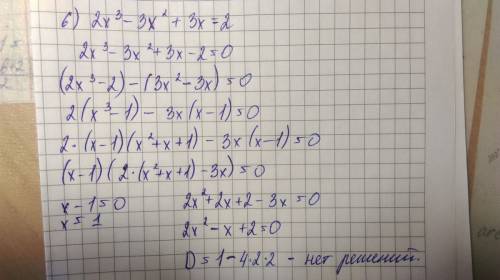 б) 2x³ - 3x² + 3x = 2
2x³ - 3x² + 3x - 2 = 0
(2x³ - 2) - (3x² - 3x) = 0
2(x³ - 1) - 3x(x - 1) = 0
2·(x - 1)(x² + x + 1) - 3x(x - 1) = 0
(x - 1)(2·(x² + x + 1) - 3x) = 0
x - 1 = 0 2x² + 2x + 2 - 3x = 0
x = 1 2x² - x + 2 = 0
D = 1 - 4·2·2 - нет решений.